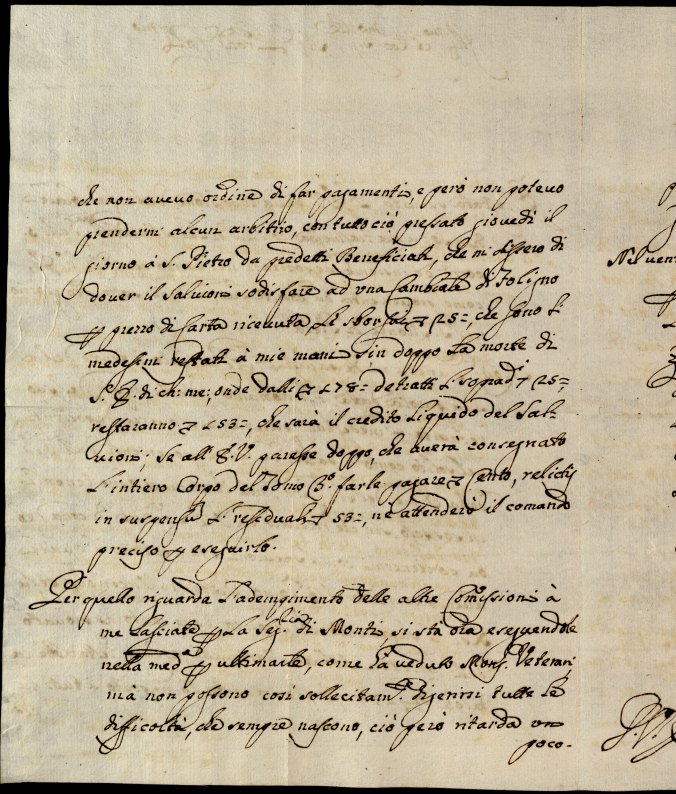 che non avevo ordine di far pagamenti, e però non potevo
prendermi alcun arbitrio, con tutto ciò pressato giovedì il
giorno à S. Pietro da predetti Beneficiati, che mi dissero di
dover il Salvioni sodisfare ad una Cambiale di Foligno
p prezzo di Carta ricevuta, li sborsai 25=, che sono li
medesimi restati à mie mani sin doppo la morte di
S. E. di ch: me:, onde dalli 478= detratti li sopradi 25=,
restaranno 453=, che sarà il credito liquido del Sal-
vioni; Se all' E.V. paresse doppo, che averà consegnato
l'intiero Corpo del Tomo 3º. farle pagare Cento, relictis
in suspenso li residuali 53=, ne attenderò il comando
preciso p eseguirlo.
Per quello riguarda l'adempimento delle altre Comissioni à
me lasciate p la di Monti, si stà ora eseguendole
nella meda p ultimarle, come hà veduto Mons. Veterani
mà non possono così sollecitamte. digerirsi tutte le
difficoltà, che sempre nascono, ciò però ritarda un
poco.
Nel